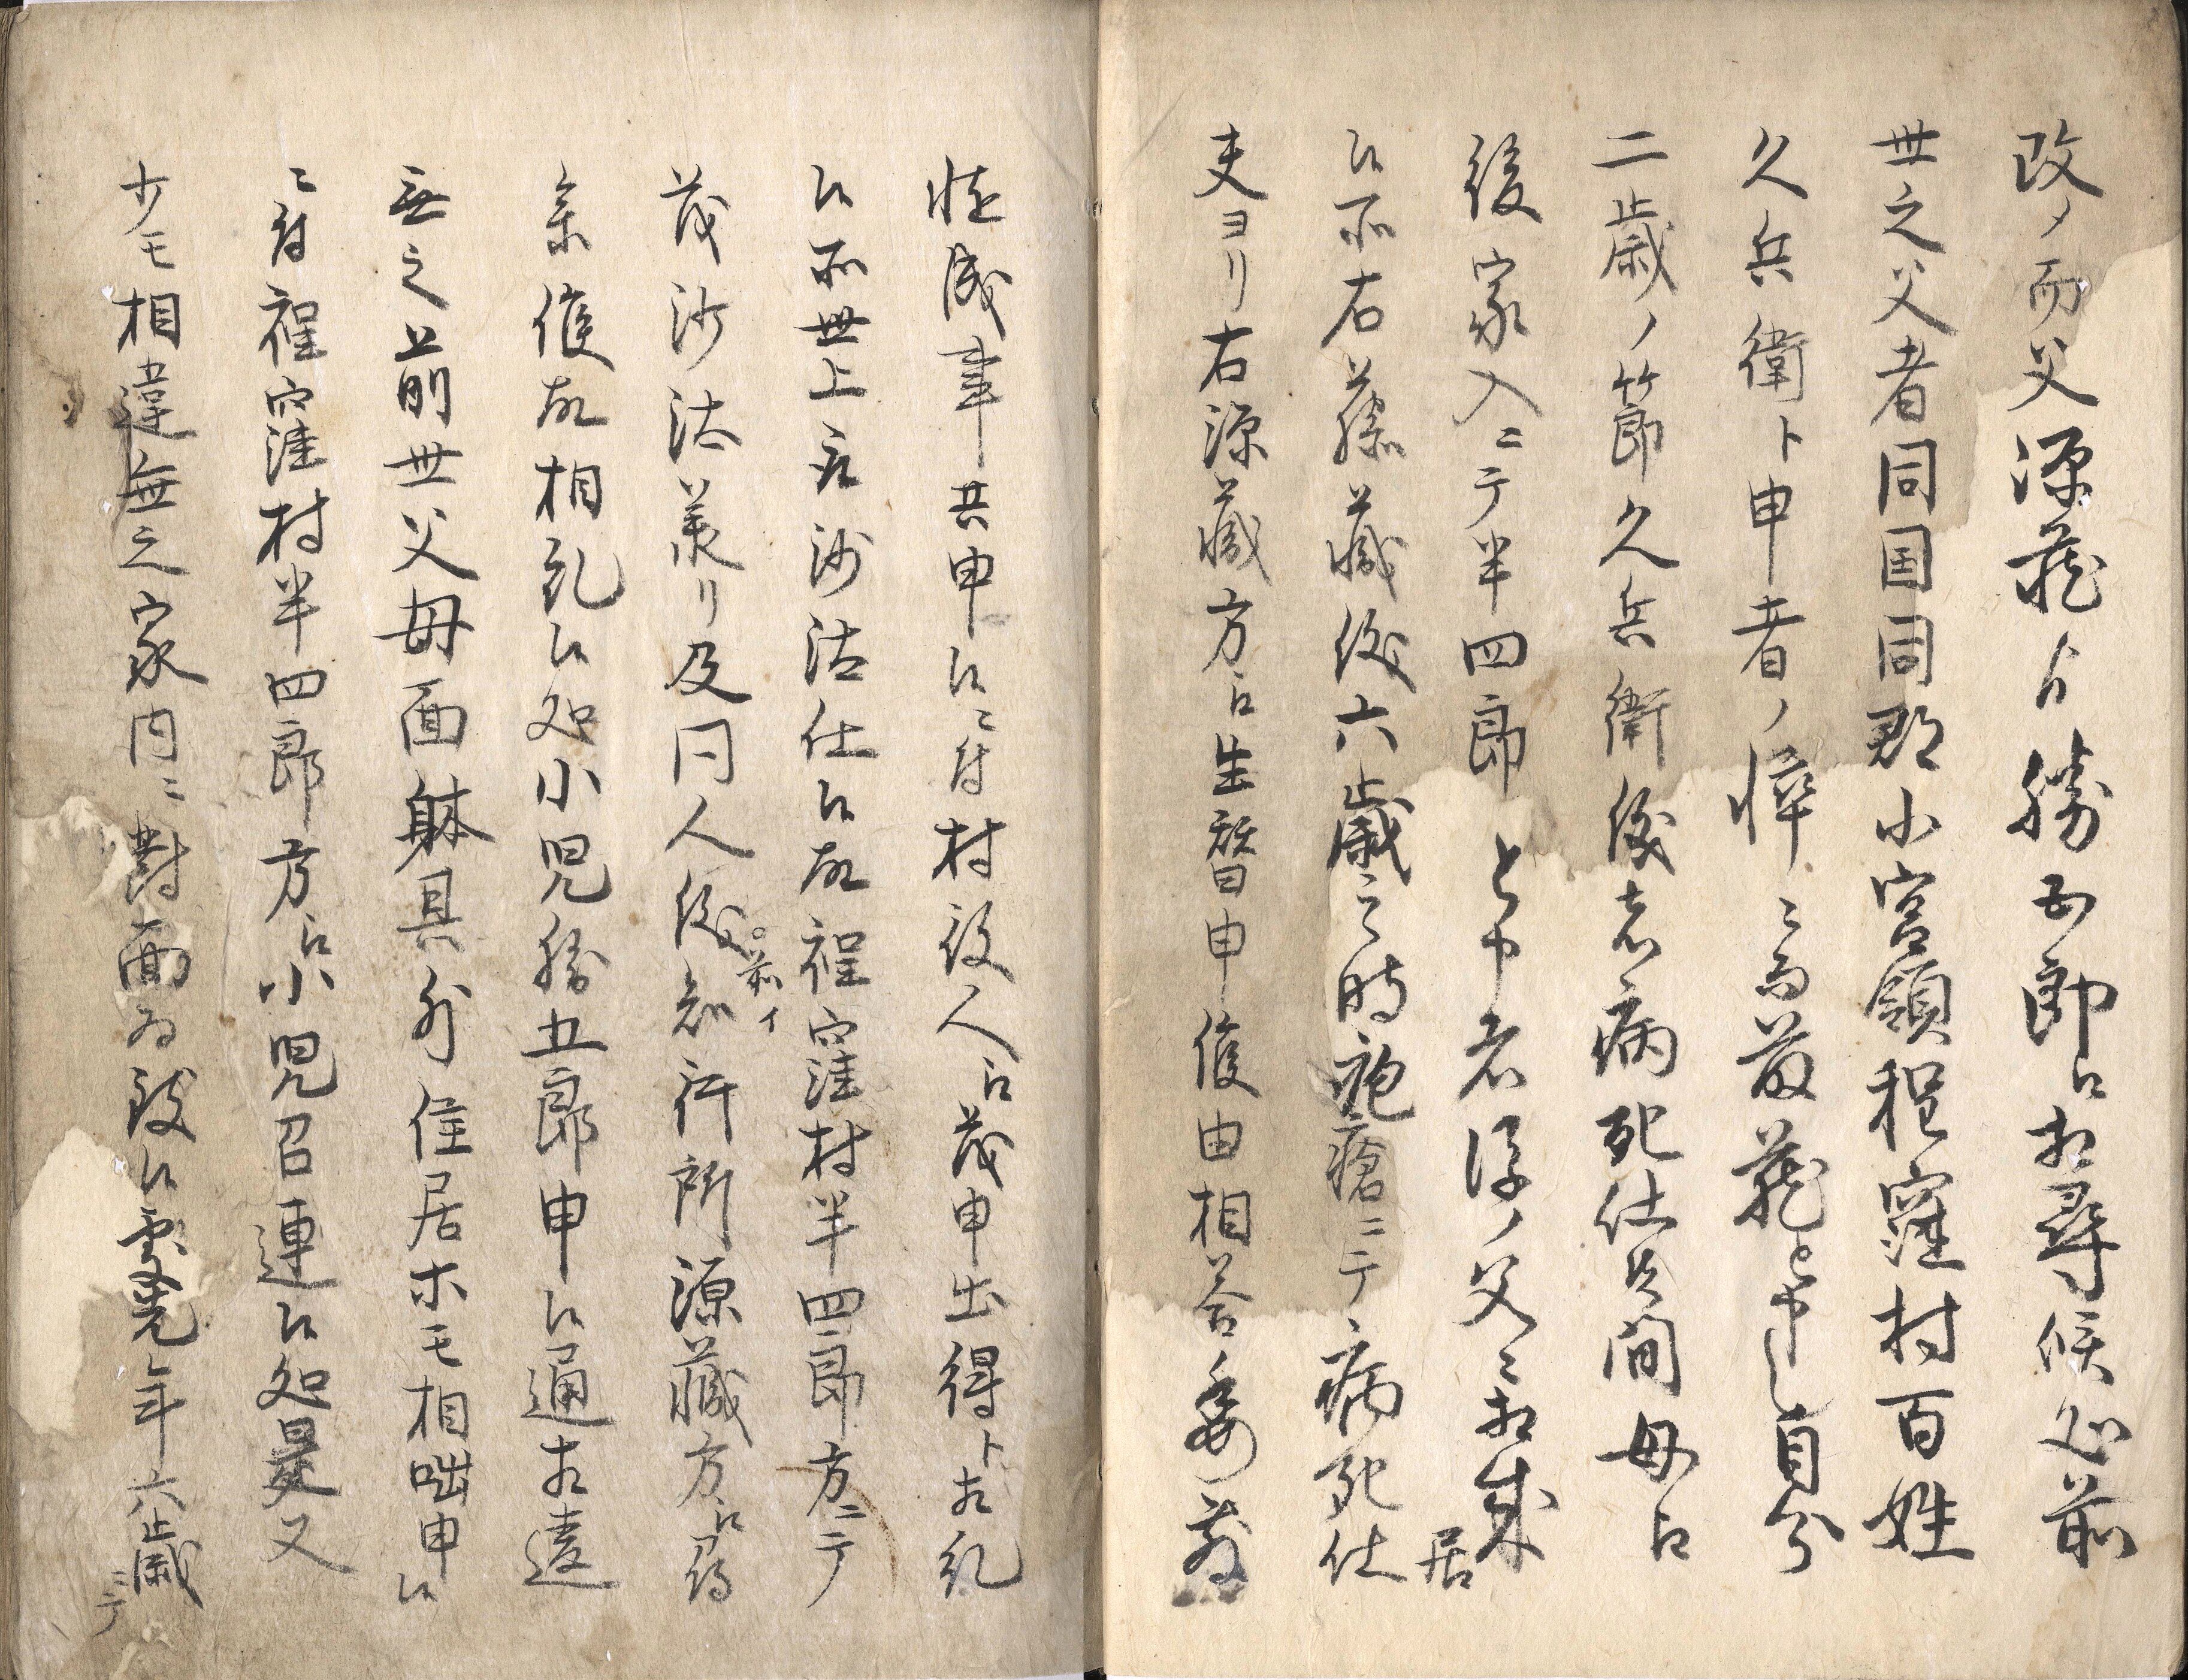 改ノ而父源蔵ゟ勝五郎江相尋候処前
世之父者同国同郡小宮領程窪村百姓
久兵衛ト申者ノ悴ニ而藤蔵と申し自分
二歳ノ節久兵衛後者病死仕候間母江
後家入ニテ半四郎と申者後ノ父ニ相成居
候所右藤蔵後六歳之時疱瘡ニテ病死仕
夫ヨリ右源蔵方江生替申候由相答委敷
慥成事共申候ニ付村役人江茂申出得ト相糺
候所世上ニ而沙汰仕候故程窪村半四郎方ニテ
茂沙汰義リ及同人後知行所源蔵方江尋
前イ
参候故相糺候処小児勝五郎申候通相違
無之前世父母面躰其外住居ホモ相咄申候
ニ付程窪村半四郎方江小児召連候処是又
少モ相違無之家内ニ對面為致候處先年六歳ニテ